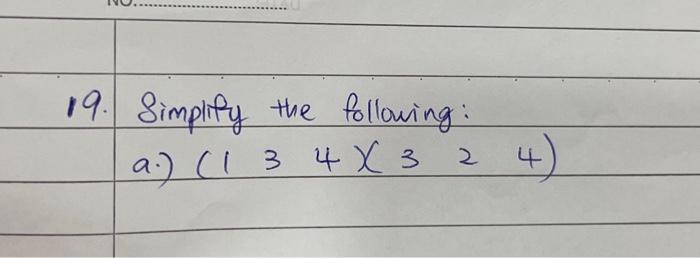 NO.
19. Simplify the following:
a.) (1 3 4)(3 2 4)